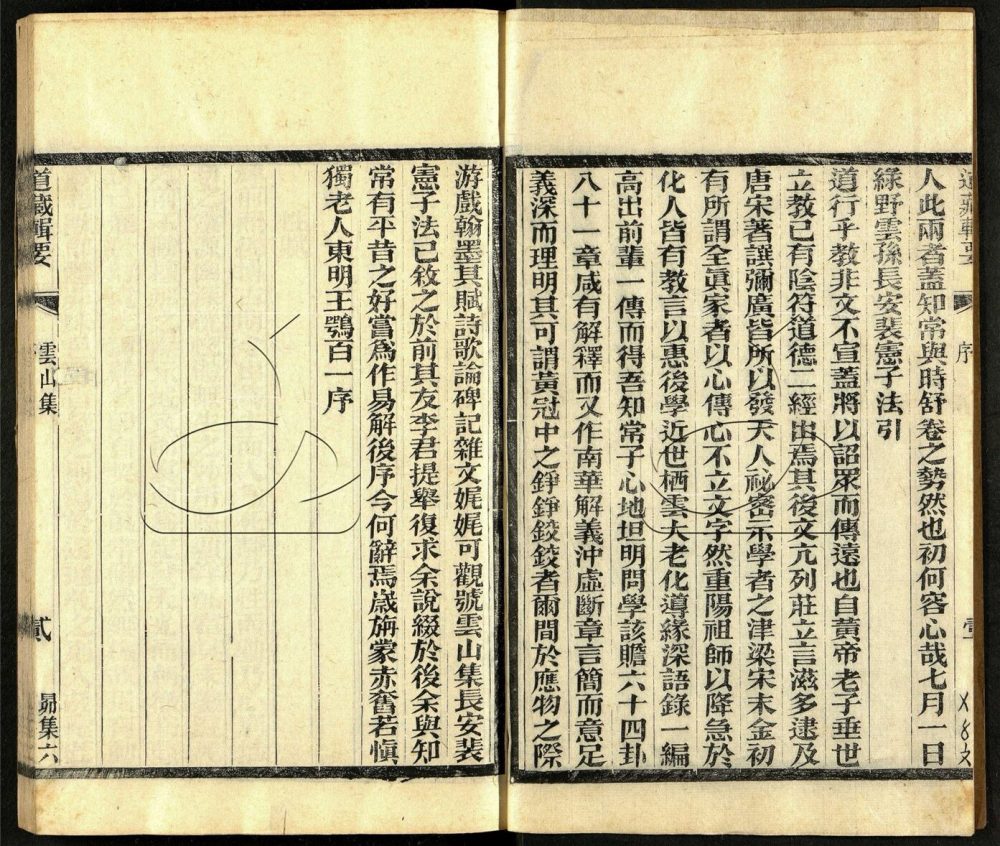 道藏輯要
序
壹
人此兩者蓋知常與時舒卷之勢然也初何容心哉七月一日
綠野雲孫長安裴憲子法引
道行乎教非文不宣蓋將以詔眾而傳遠也自黃帝老子垂世
立教已有陰符道德二經出焉其後文亢列莊立言滋多逮及
唐宋著譔彌廣皆所以發天人祕密示學者之津梁宋末金初
有所謂全眞家者以心傳心不立文字然重陽祖師以降急於
化人皆有教言以惠後學近世栖雲大老化導緣深語錄一編
高出前輩一傳而得吾知常子心地坦明問學該贍六十四卦
八十一章咸有解釋而又作南華解義沖虛斷章言簡而意足
義深而理明其可謂黃冠中之錚錚鉸鉸者爾間於應物之際
游戲翰墨其賦詩歌論碑記雜文娓娓可觀號雲山集長安裴
憲子法已敘之於前其友李君提舉復求余說綴於後余與知
常有平昔之好嘗爲作易解後序今何辭焉歲旃蒙赤奮若愼
獨老人東明王鶚百一序
道藏輯要
雲山集
貳
昴集六